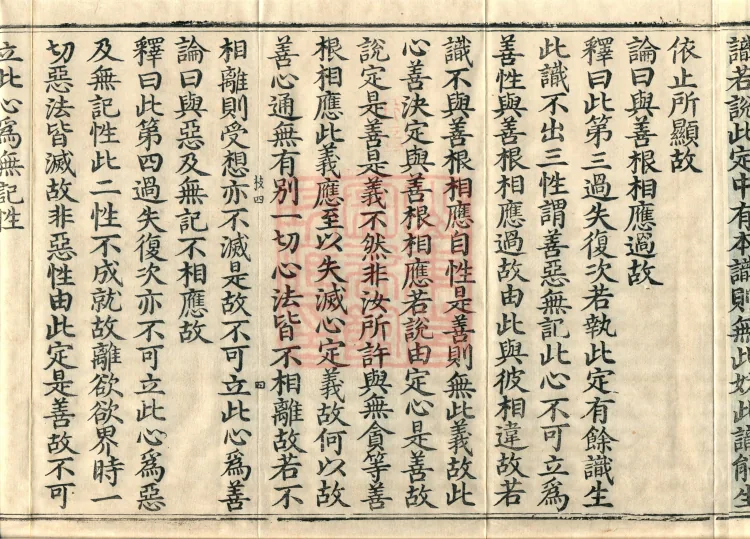 識若說此定中有本識則無此妨此識能生
依止所顯故
論曰與善根相應過故
釋曰此第三過失復次若執此定有餘識生
此識不出三性謂善惡無記此心不可立為
善性與善根相應過故由此與彼相違故若
識不與善根相應自性是善則無此義故此
心善決定與善根相應若說由定心是善故
說定是善是義不然非汝所許與無貪等善
根相應此義應至以失滅心定義故何以故
善心通無有別一切心法皆不相離故若不
技四
四
相離則受想亦不滅是故不可立此心為善
論曰與惡及無記不相應故
釋曰此第四過失復次亦不可立此心為惡
及無記性此二性不成就故離欲欲界時一
切惡法皆滅故非惡性由此定是善故不可
立此心為無記性